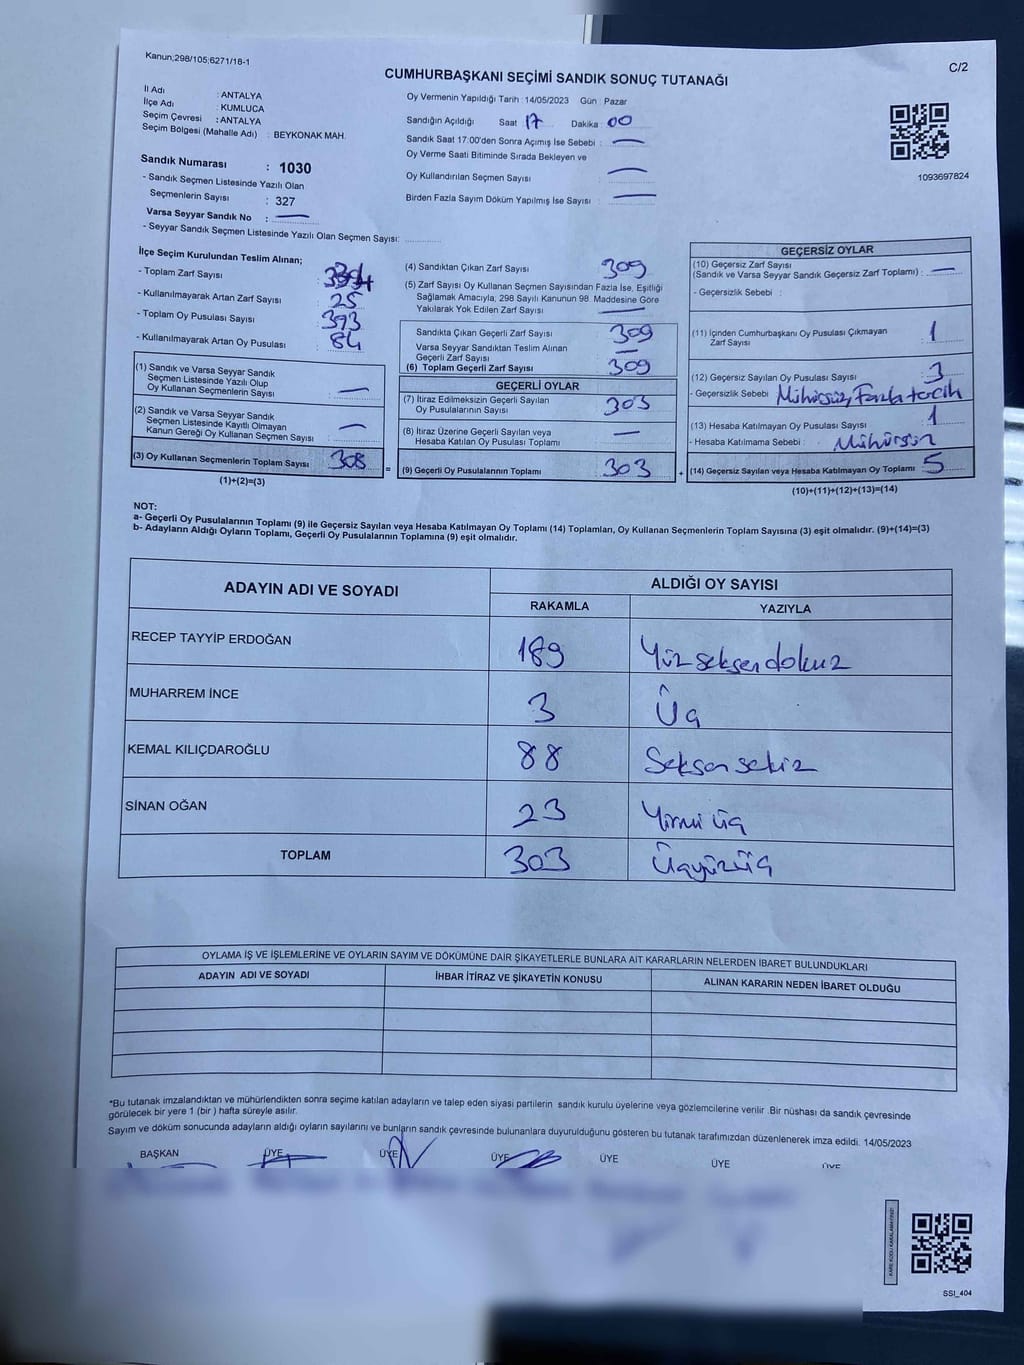 Kanun;298/105;6271/18-1
C/2
CUMHURBAŞKANI SEÇİMİ SANDIK SONUÇ TUTANAĞI
İl Adı : ANTALYA
İlçe Adı : KUMLUCA
Seçim Çevresi : ANTALYA
Seçim Bölgesi (Mahalle Adı) : BEYKONAK MAH.
Sandık Numarası : 1030
- Sandık Seçmen Listesinde Yazılı Olan
Seçmenlerin Sayısı : 327
Varsa Seyyar Sandık No : —
- Seyyar Sandık Seçmen Listesinde Yazılı Olan Seçmen Sayısı:
Oy Vermenin Yapıldığı Tarih : 14/05/2023 Gün : Pazar
Sandığın Açıldığı Saat 17 Dakika : 00
Sandık Saat 17.00'den Sonra Açımış İse Sebebi : —
Oy Verme Saati Bitiminde Sırada Bekleyen ve
Oy Kullandırılan Seçmen Sayısı : —
Birden Fazla Sayım Döküm Yapılmış İse Sayısı : —
1093697824
İlçe Seçim Kurulundan Teslim Alınan;
- Toplam Zarf Sayısı :
- Kullanılmayarak Artan Zarf Sayısı : 25
- Toplam Oy Pusulası Sayısı : 393
- Kullanılmayarak Artan Oy Pusulası : 84
(1) Sandık ve Varsa Seyyar Sandık
Seçmen Listesinde Yazılı Olup
Oy Kullanan Seçmenlerin Sayısı : —
(2) Sandık ve Varsa Seyyar Sandık
Seçmen Listesinde Kayıtlı Olmayan
Kanun Gereği Oy Kullanan Seçmen Sayısı : —
(3) Oy Kullanan Seçmenlerin Toplam Sayısı 308 =
(1)+(2)=(3)
(4) Sandıktan Çıkan Zarf Sayısı 309
(5) Zarf Sayısı Oy Kullanan Seçmen Sayısından Fazla İse, Eşitliği
Sağlamak Amacıyla, 298 Sayılı Kanunun 98. Maddesine Göre
Yakılarak Yok Edilen Zarf Sayısı —
Sandıkta Çıkan Geçerli Zarf Sayısı 309
Varsa Seyyar Sandıktan Teslim Alınan
Geçerli Zarf Sayısı —
(6) Toplam Geçerli Zarf Sayısı 309
GEÇERLİ OYLAR
(7) İtiraz Edilmeksizin Geçerli Sayılan
Oy Pusulalarının Sayısı 303
(8) İtiraz Üzerine Geçerli Sayılan veya
Hesaba Katılan Oy Pusulası Toplamı —
(9) Geçerli Oy Pusulalarının Toplamı 303 +
GEÇERSİZ OYLAR
(10) Geçersiz Zarf Sayısı
(Sandık ve Varsa Seyyar Sandık Geçersiz Zarf Toplamı) : —
- Geçersizlik Sebebi :
(11) İçinden Cumhurbaşkanı Oy Pusulası Çıkmayan
Zarf Sayısı : 1
(12) Geçersiz Sayılan Oy Pusulası Sayısı : 3
- Geçersizlik Sebebi Mühürsüz, Fazla tercih
(13) Hesaba Katılmayan Oy Pusulası Sayısı : 1
- Hesaba Katılmama Sebebi : Mühürsüz
(14) Geçersiz Sayılan veya Hesaba Katılmayan Oy Toplamı 5
(10)+(11)+(12)+(13)=(14)
NOT:
a- Geçerli Oy Pusulalarının Toplamı (9) ile Geçersiz Sayılan veya Hesaba Katılmayan Oy Toplamı (14) Toplamları, Oy Kullanan Seçmenlerin Toplam Sayısına (3) eşit olmalıdır. (9)+(14)=(3)
b- Adayların Aldığı Oyların Toplamı, Geçerli Oy Pusulalarının Toplamına (9) eşit olmalıdır.
ADAYIN ADI VE SOYADI
ALDIĞI OY SAYISI
RAKAMLA YAZIYLA
RECEP TAYYİP ERDOĞAN 189 Yüz seksen dokuz
MUHARREM İNCE 3 Üç
KEMAL KILIÇDAROĞLU 88 Seksen sekiz
SİNAN OĞAN 23 Yirmi üç
TOPLAM 303 Üçyüzüç
OYLAMA İŞ VE İŞLEMLERİNE VE OYLARIN SAYIM VE DÖKÜMÜNE DAİR ŞİKAYETLERLE BUNLARA AİT KARARLARIN NELERDEN İBARET BULUNDUKLARI
ADAYIN ADI VE SOYADI İHBAR İTİRAZ VE ŞİKAYETİN KONUSU ALINAN KARARIN NEDEN İBARET OLDUĞU
*Bu tutanak imzalandıktan ve mühürlendikten sonra seçime katılan adayların ve talep eden siyasi partilerin sandık kurulu üyelerine veya gözlemcilerine verilir .Bir nüshası da sandık çevresinde
görülecek bir yere 1 (bir ) hafta süreyle asılır.
Sayım ve döküm sonucunda adayların aldığı oyların sayılarını ve bunların sandık çevresinde bulunanlara duyurulduğunu gösteren bu tutanak tarafımızdan düzenlenerek imza edildi. 14/05/2023
BAŞKAN ÜYE ÜYE ÜYE ÜYE ÜYE ÜYE
SSI_404